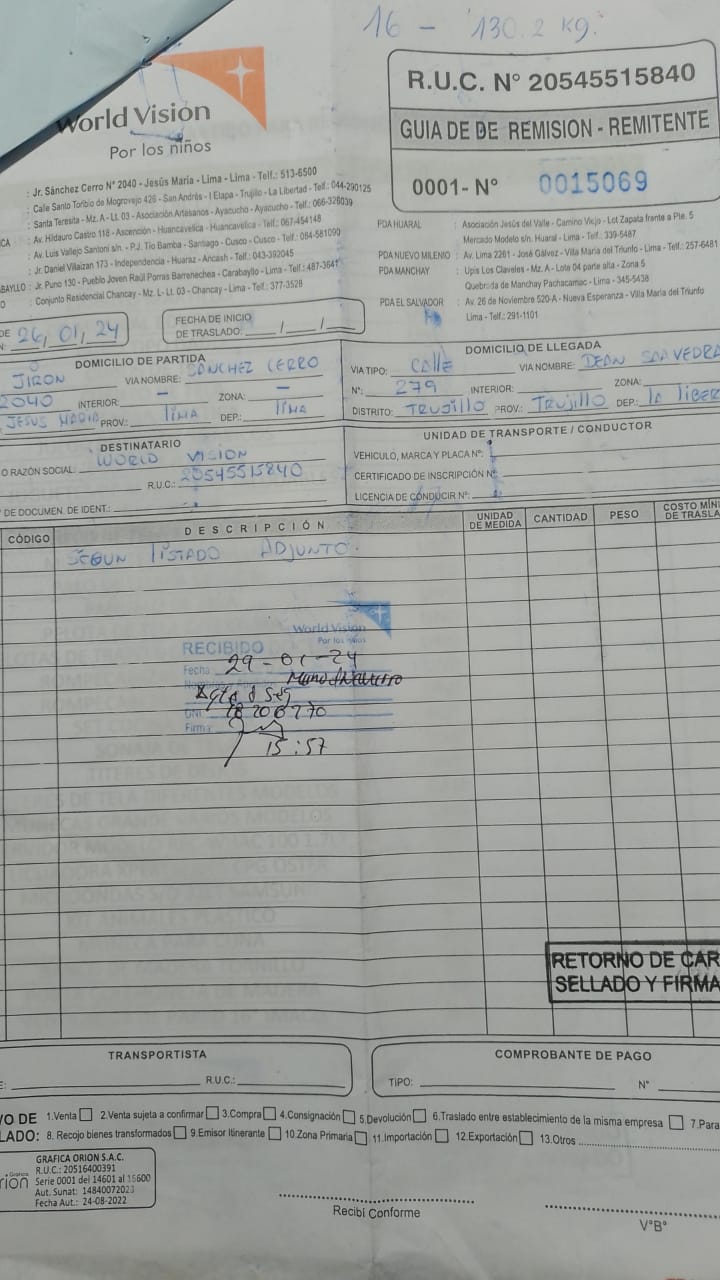 16 - 130.2 kg.
World Vision
Por los niños
R.U.C. N° 20545515840
GUIA DE DE REMISION - REMITENTE
0001- N° 0015069
: Jr. Sánchez Cerro N° 2040 - Jesús María - Lima - Lima - Telf.: 513-6500
: Calle Santo Toribio de Mogrovejo 426 - San Andrés - I Etapa - Trujillo - La Libertad - Telf.: 044-290125
: Santa Teresita - Mz. A - Lt. 03 - Asociación Artesanos - Ayacucho - Ayacucho - Telf.: 066-326039
ICA : Av. Hildauro Castro 118 - Ascención - Huancavelica - Huancavelica - Telf.: 067-454148
: Av. Luis Vallejo Santoni s/n - P.J. Tío Bamba - Santiago - Cusco - Cusco - Telf.: 084-581090
: Jr. Daniel Villaizan 173 - Independencia - Huaraz - Ancash - Telf.: 043-392045
ABAYLLO : Jr. Puno 130 - Pueblo Joven Raúl Porras Barrenechea - Carabayllo - Lima - Telf.: 487-3641
O : Conjunto Residencial Chancay - Mz. L- Lt. 03 - Chancay - Lima - Telf.: 377-3528
PDA HUARAL : Asociación Jesús del Valle - Camino Viejo - Lot Zapata frente a Pte. 5
Mercado Modelo s/n. Huaral - Lima - Telf.: 339-5487
PDA NUEVO MILENIO : Av. Lima 2261 - José Gálvez - Villa María del Triunfo - Lima - Telf.: 257-6481
PDA MANCHAY : Upis Los Claveles - Mz. A - Lote 04 parte alta - Zona 5
Quebrada de Manchay Pachacamac - Lima - 345-5438
PDA EL SALVADOR : Av. 26 de Noviembre 520-A - Nueva Esperanza - Villa María del Triunfo
Lima - Telf.: 291-1101
DE
N: 26, 01, 24
FECHA DE INICIO
DE TRASLADO: / /
DOMICILIO DE PARTIDA
JIRON VIA NOMBRE: SANCHEZ CERRO
2040 INTERIOR: - ZONA: -
JESUS MARIA PROV.: LIMA DEP.: LIMA
DOMICILIO DE LLEGADA
VIA TIPO: CALLE VIA NOMBRE: DEAN SAAVEDRA
N°: 279 INTERIOR: ZONA:
DISTRITO: TRUJILLO PROV.: TRUJILLO DEP.: LA LIBER
DESTINATARIO
O RAZÓN SOCIAL: WORLD VISION
R.U.C.: 20545515840
DE DOCUMEN. DE IDENT.:
UNIDAD DE TRANSPORTE / CONDUCTOR
VEHICULO, MARCA Y PLACA N°:
CERTIFICADO DE INSCRIPCIÓN N°:
LICENCIA DE CONDUCIR N°:
CÓDIGO DESCRIPCIÓN UNIDAD DE MEDIDA CANTIDAD PESO COSTO MÍNI DE TRASLA
SEGUN LISTADO ADJUNTO.
World Vision
Por los niños
RECIBIDO
Fecha: 29-01-24
DNI: 18206270
Firma:
15:57
RETORNO DE CAR
SELLADO Y FIRMA
TRANSPORTISTA
E: R.U.C.:
COMPROBANTE DE PAGO
TIPO: N°
VO DE 1.Venta 2.Venta sujeta a confirmar 3.Compra 4.Consignación 5.Devolución 6.Traslado entre establecimiento de la misma empresa 7.Para
LADO: 8. Recojo bienes transformados 9.Emisor Itinerante 10.Zona Primaria 11.Importación 12.Exportación 13.Otros
GRAFICA ORION S.A.C.
R.U.C.: 20516400391
Serie 0001 del 14601 al 15600
Aut. Sunat: 14840072023
Fecha Aut.: 24-08-2022
Recibí Conforme
V°B°